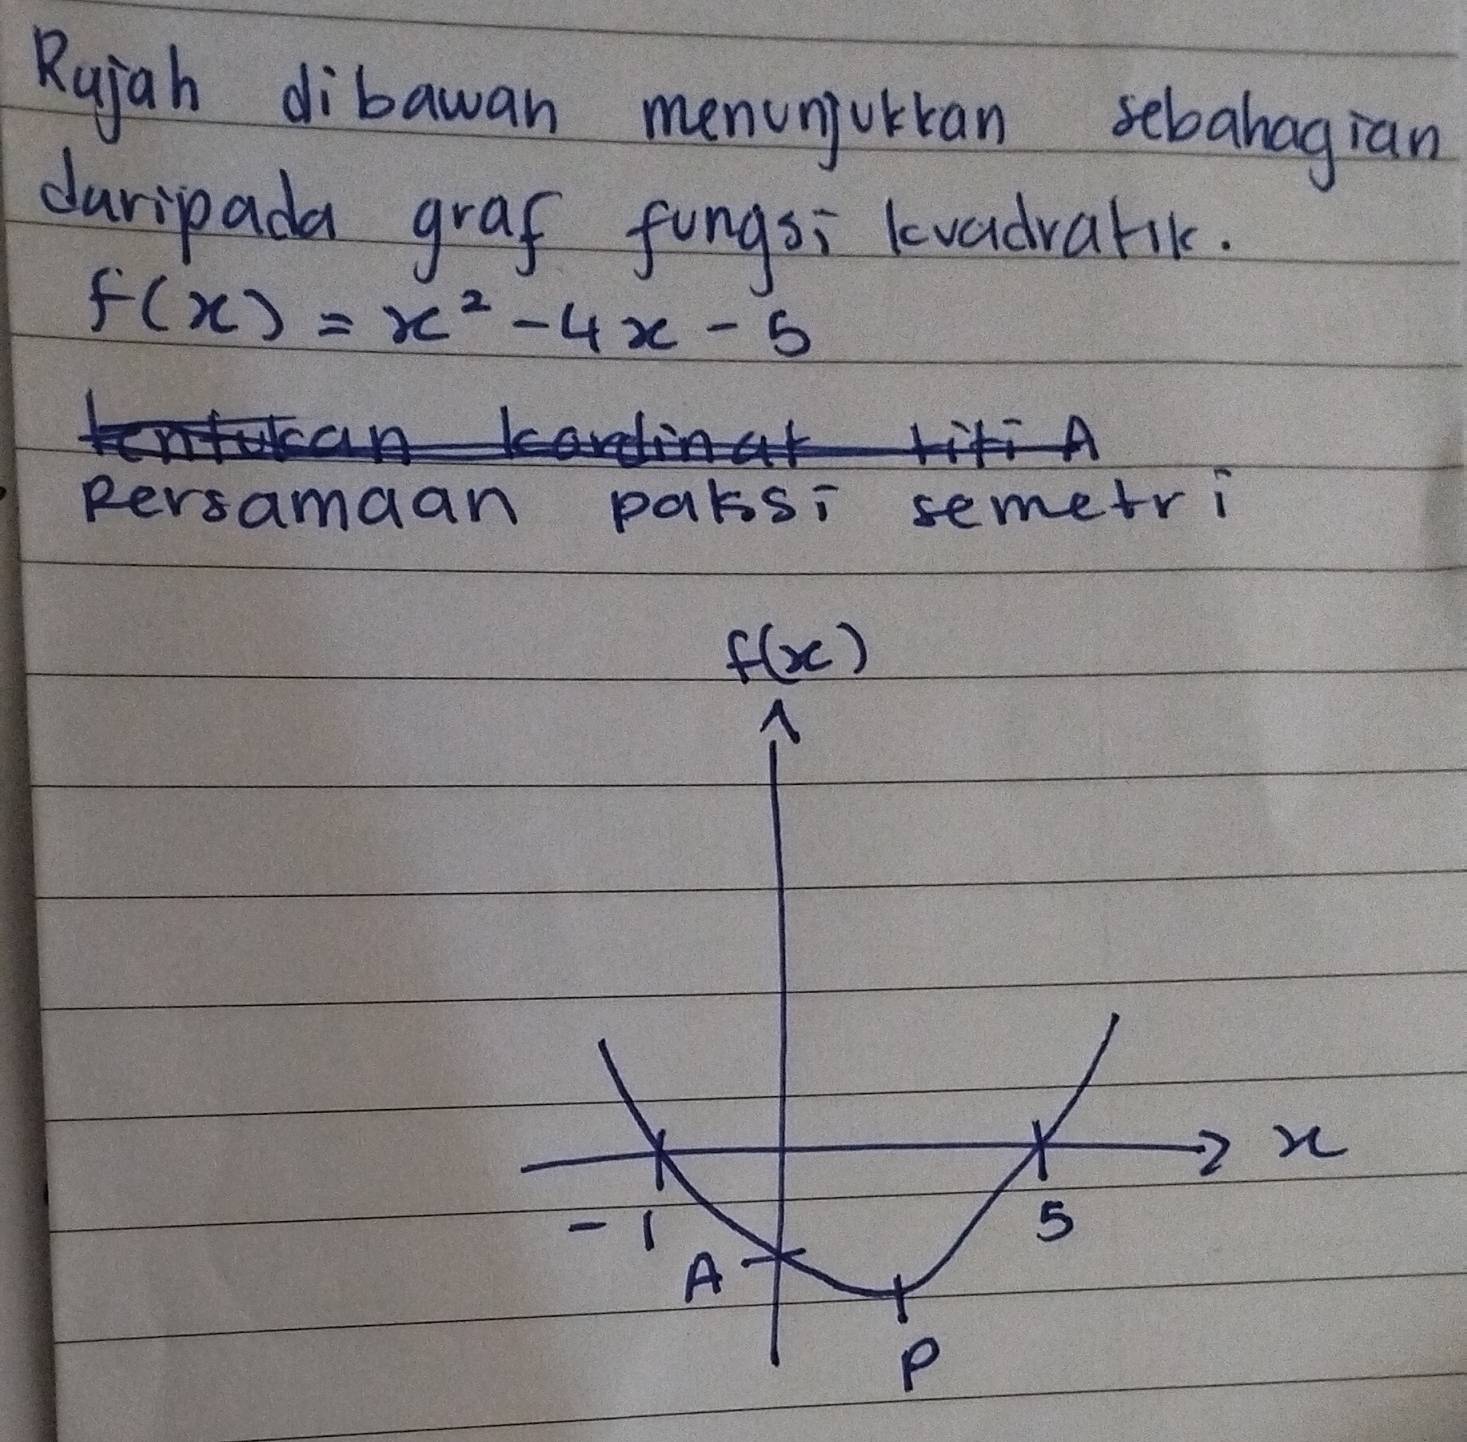 Rajah dibawah menunjukkan sebahagian
daripada graf fungsi kuadratik.
f(x) = x² - 4x - 5
tentukan kordinat titi A
Persamaan paksi semetri
f(x)
x
-1
5
A
P